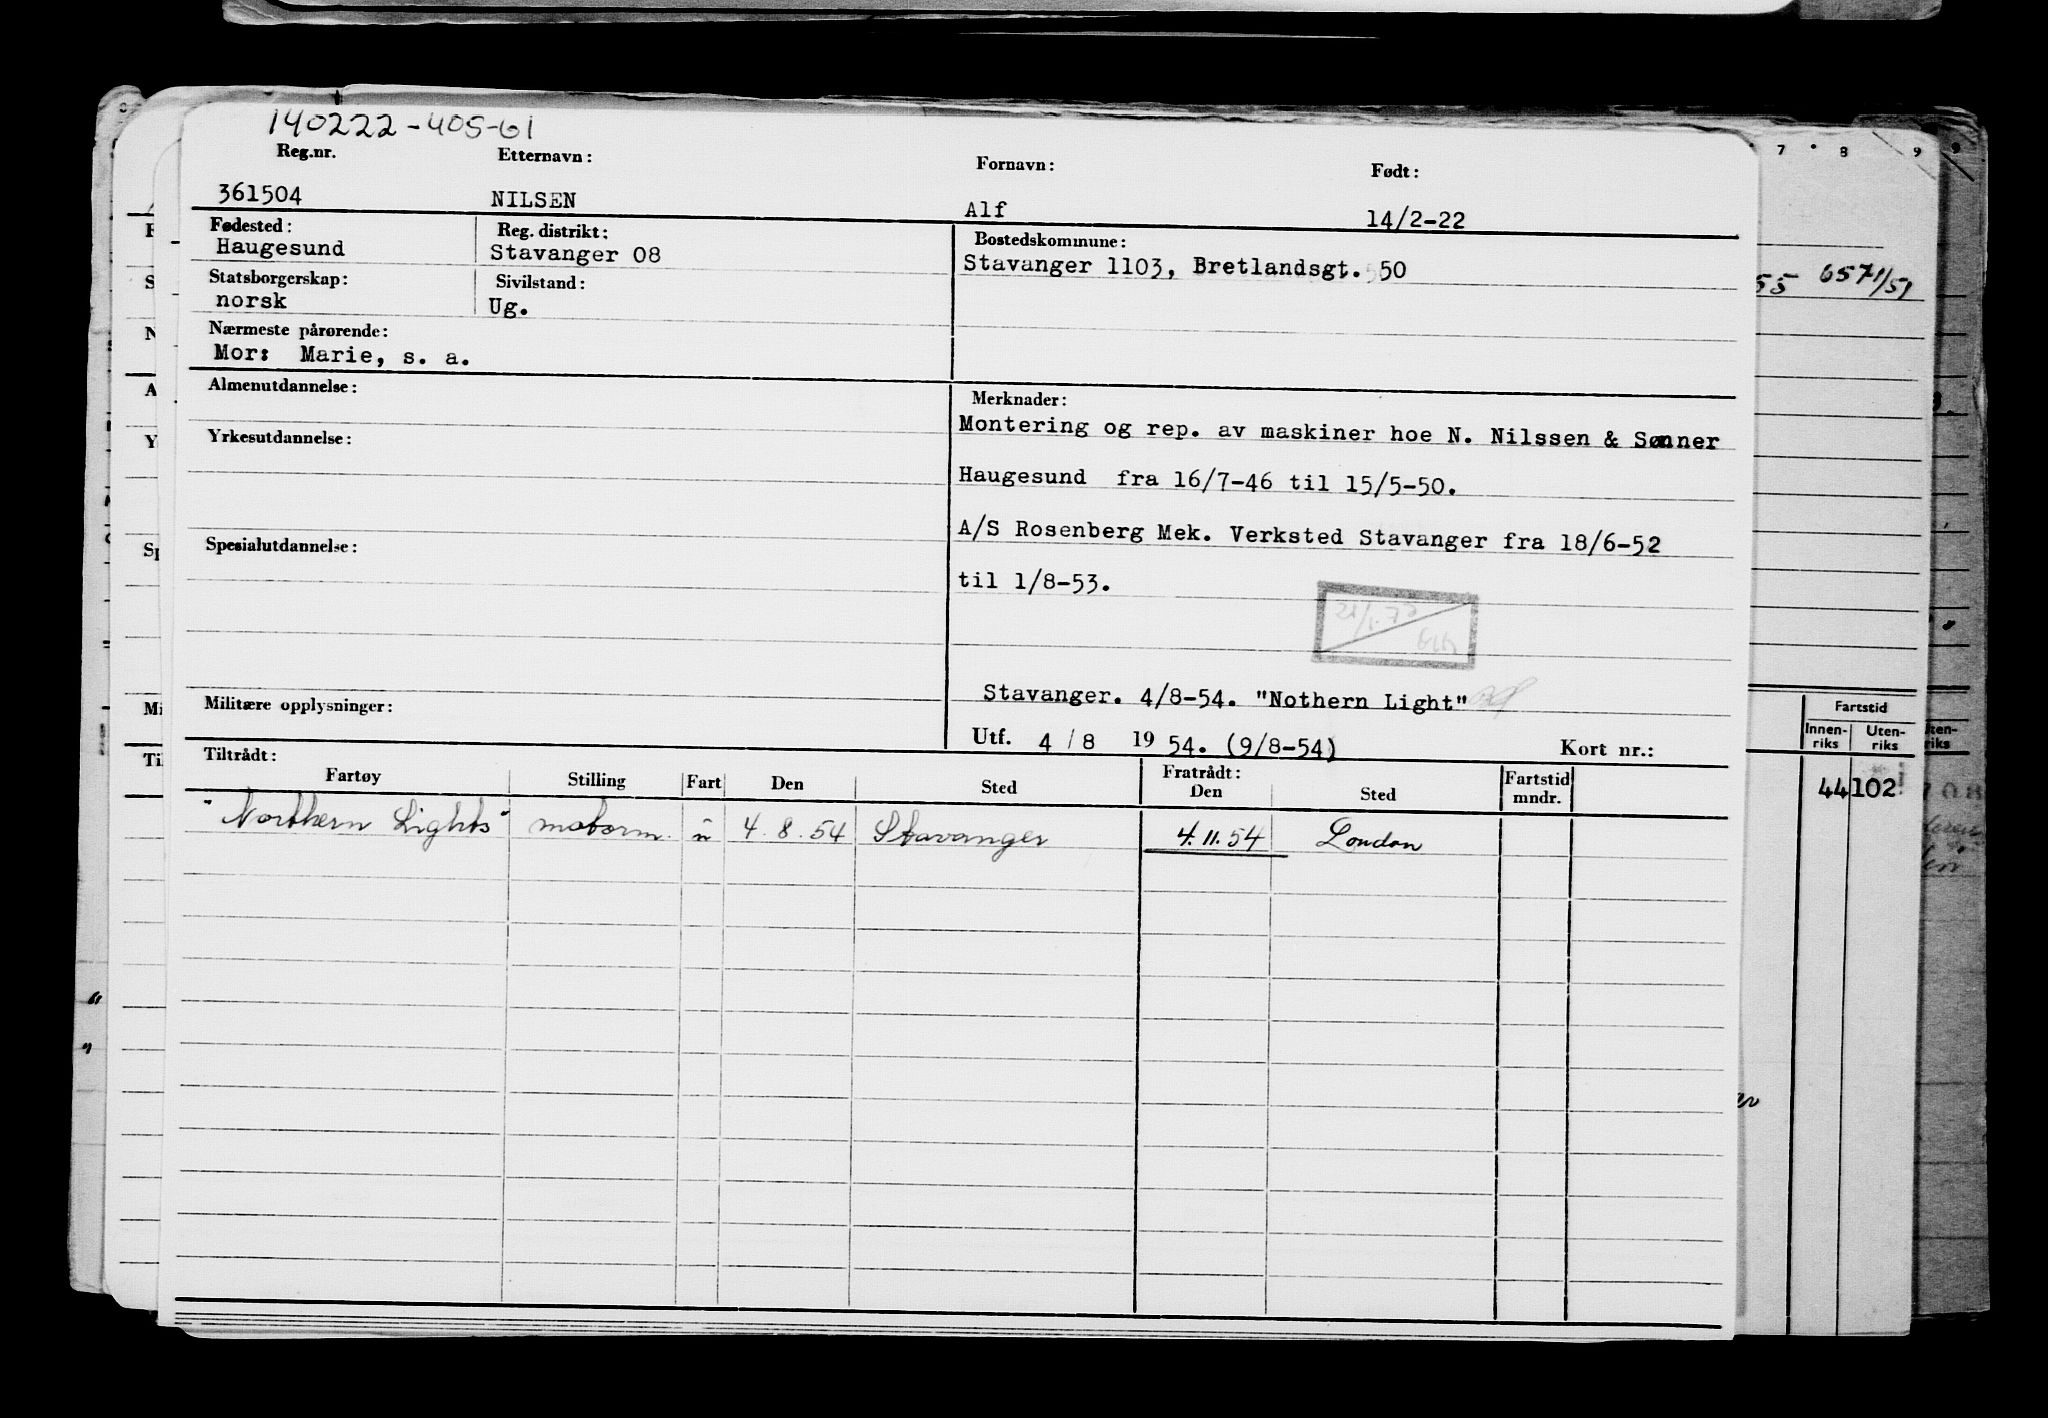 140222-405-61
Reg.nr. Etternavn: Fornavn: Født:
361504 NILSEN Alf 14/2-22
Fødested: Reg. distrikt: Bostedskommune:
Haugesund Stavanger 08 Stavanger 1103, Bretlandsgt. 50
Statsborgerskap: Sivilstand:
norsk Ug.
Nærmeste pårørende:
Mor: Marie, s. a.
Almenutdannelse: Merknader:
Montering og rep. av maskiner hoe N. Nilssen & Sønner
Yrkesutdannelse:
Haugesund fra 16/7-46 til 15/5-50.
A/S Rosenberg Mek. Verksted Stavanger fra 18/6-52
Spesialutdannelse:
til 1/8-53.
Stavanger. 4/8-54. "Nothern Light"
Militære opplysninger:
Utf. 4/8 1954. (9/8-54) Kort nr.:
Tiltrådt: Fratrådt:
Fartøy Stilling Fart Den Sted Den Sted Fartstid mndr.
"Northern Lights" motorm. u 4.8.54 Stavanger 4.11.54 London
7 8 9 9
55 6571/51
Fartstid
Innen-riks Uten-riks
44 102